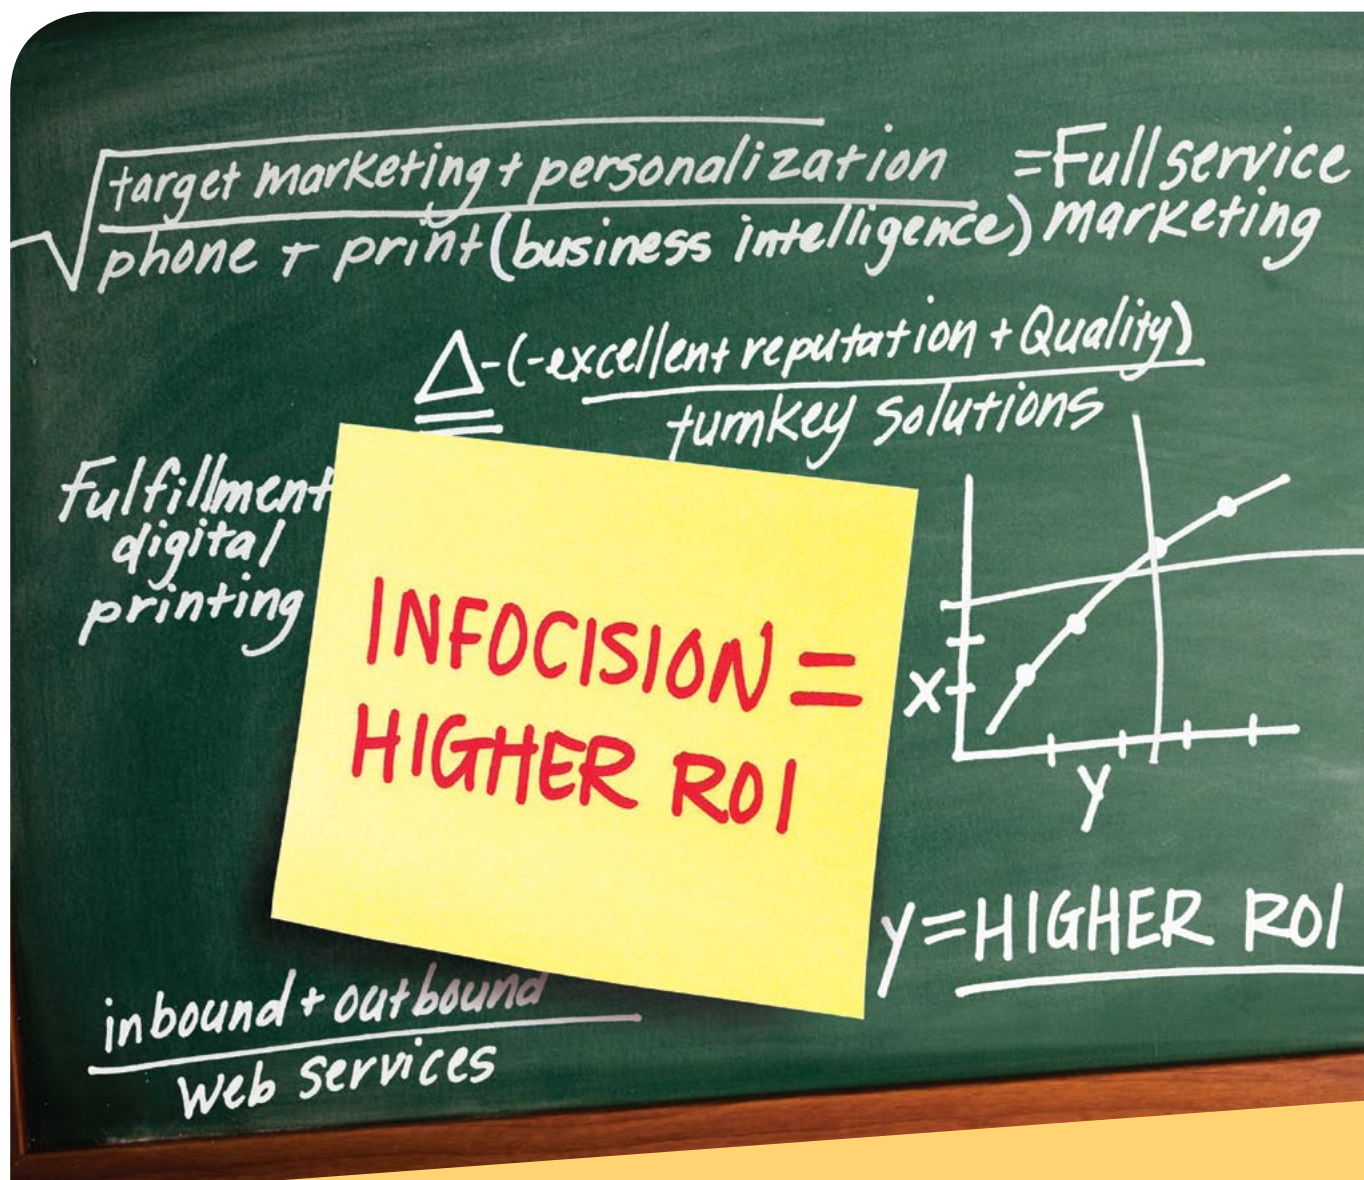 target marketing + personalization
phone + print (business intelligence)
= Full service
marketing
Δ - (-excellent reputation + Quality)
turnkey solutions
Fulfillment
digital
printing
INFOCISION =
HIGHER ROI
X
y
y = HIGHER ROI
inbound + outbound
Web services